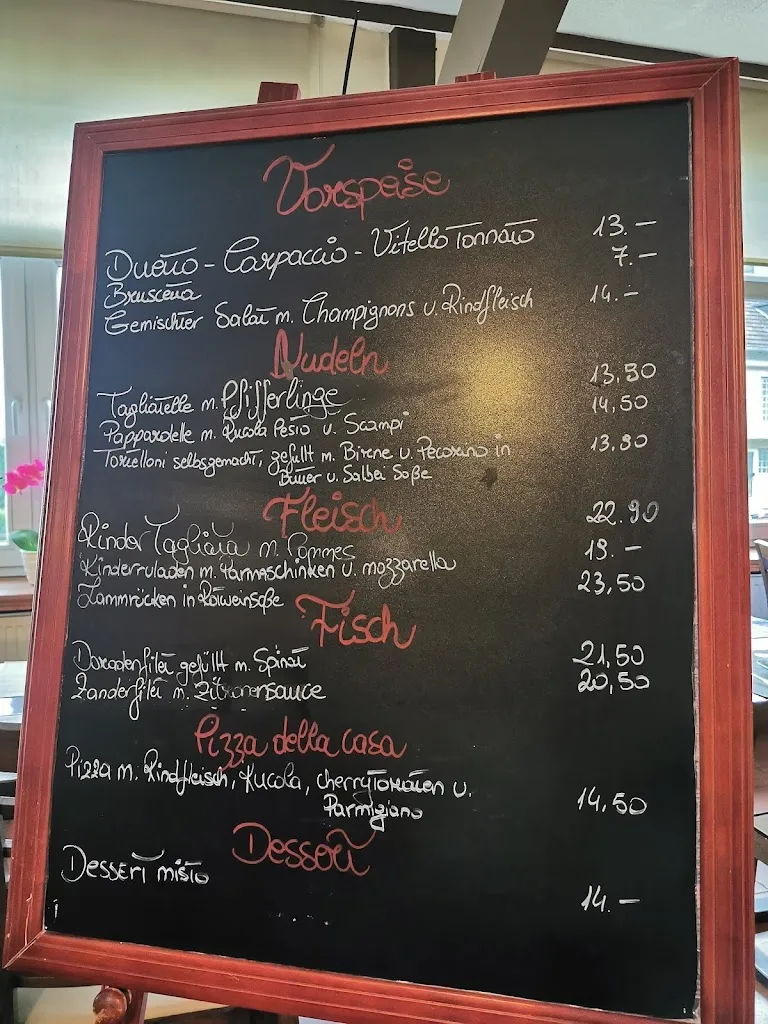 Vorspeise
Duetto - Carpaccio - Vitello Tonnato 13.-
Bruscetta 7.-
Gemischter Salat m. Champignons u. Rindfleisch 14.-
Nudeln
Tagliatelle m. Pfifferlinge 13,50
Pappardelle m. Rucola Pesto u. Scampi 14,50
Tortelloni selbsgemacht, gefüllt m. Birne u. Pecorino in 13,90
Butter u. Salbei Soße
Fleisch
Rinder Tagliata m. Pommes 22.90
Rinderruladen m. Parmaschinken u. mozzarella 19.-
Lammrücken in Rotweinsoße 23,50
Fisch
Doradenfilet gefüllt m. Spinat 21,50
Zanderfilet m. Zitronensauce 20,50
Pizza della casa
Pizza m. Rindfleisch, Rucola, cherrytomaten u.
Parmigiano 14,50
Dessert
Dessert misto 14.-